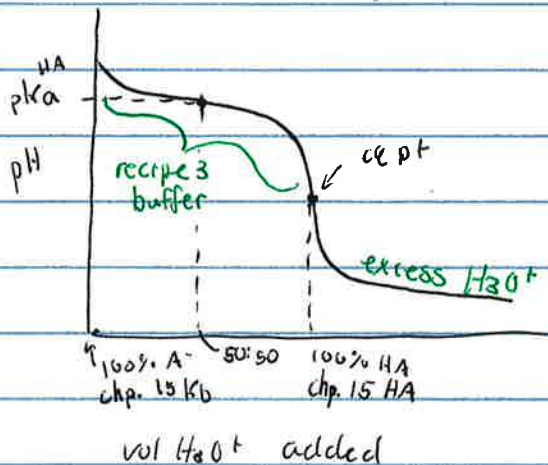 HA
pKa
pH
recipe 3
buffer
eq pt
excess H3O+
100% A-
chp. 15 Kb
50:50
100% HA
chp. 15 HA
vol H3O+ added